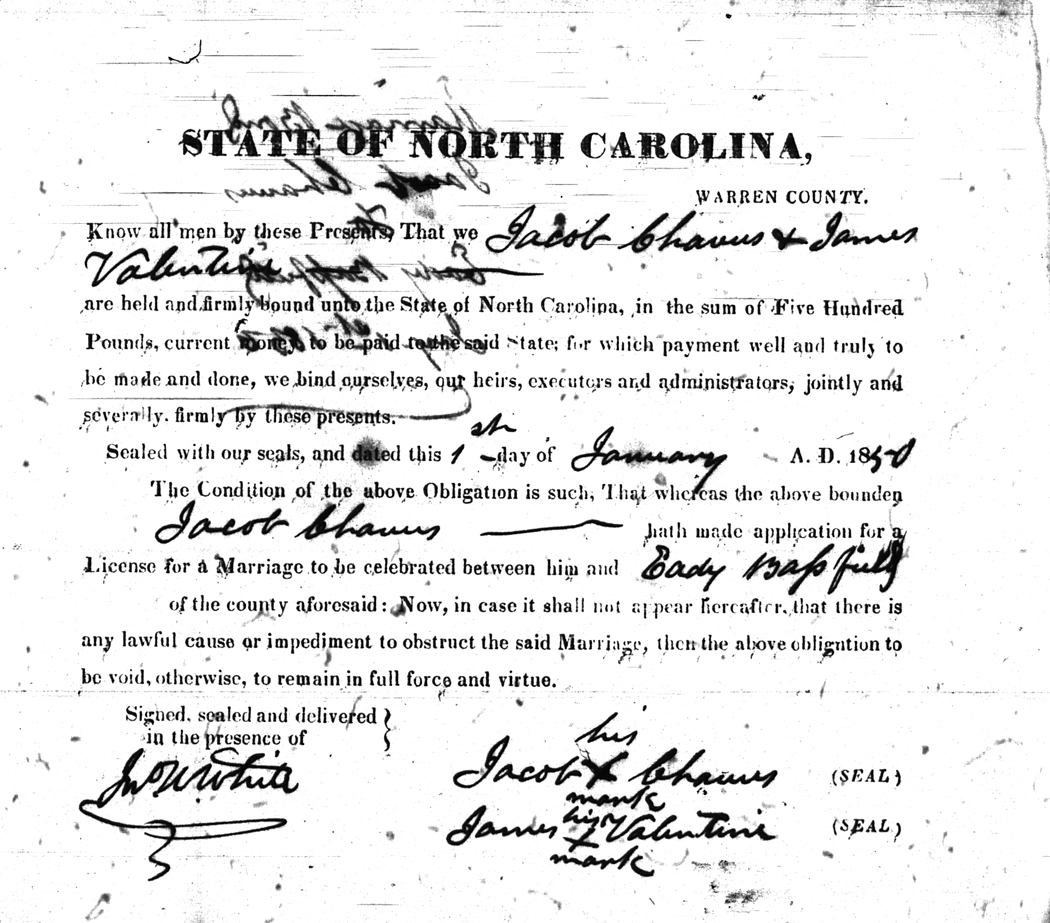 STATE OF NORTH CAROLINA,
WARREN COUNTY.
Know all men by these Presents, That we Jacob Chavus & James
Valentine
are held and firmly bound unto the State of North Carolina, in the sum of Five Hundred
Pounds, current money, to be paid to the said State; for which payment well and truly to
be made and done, we bind ourselves, our heirs, executors and administrators, jointly and
severally. firmly by these presents.
Sealed with our seals, and dated this 1st day of January A. D. 1850
The Condition of the above Obligation is such, That whereas the above bounden
Jacob Chavus hath made application for a
License for a Marriage to be celebrated between him and Eady Baſsfield
of the county aforesaid: Now, in case it shall not appear hereafter, that there is
any lawful cause or impediment to obstruct the said Marriage, then the above obligation to
be void, otherwise, to remain in full force and virtue.
Signed, sealed and delivered
in the presence of
his
Jno W White Jacob X Chavus (SEAL)
mark
his
James X Valentine (SEAL)
mark